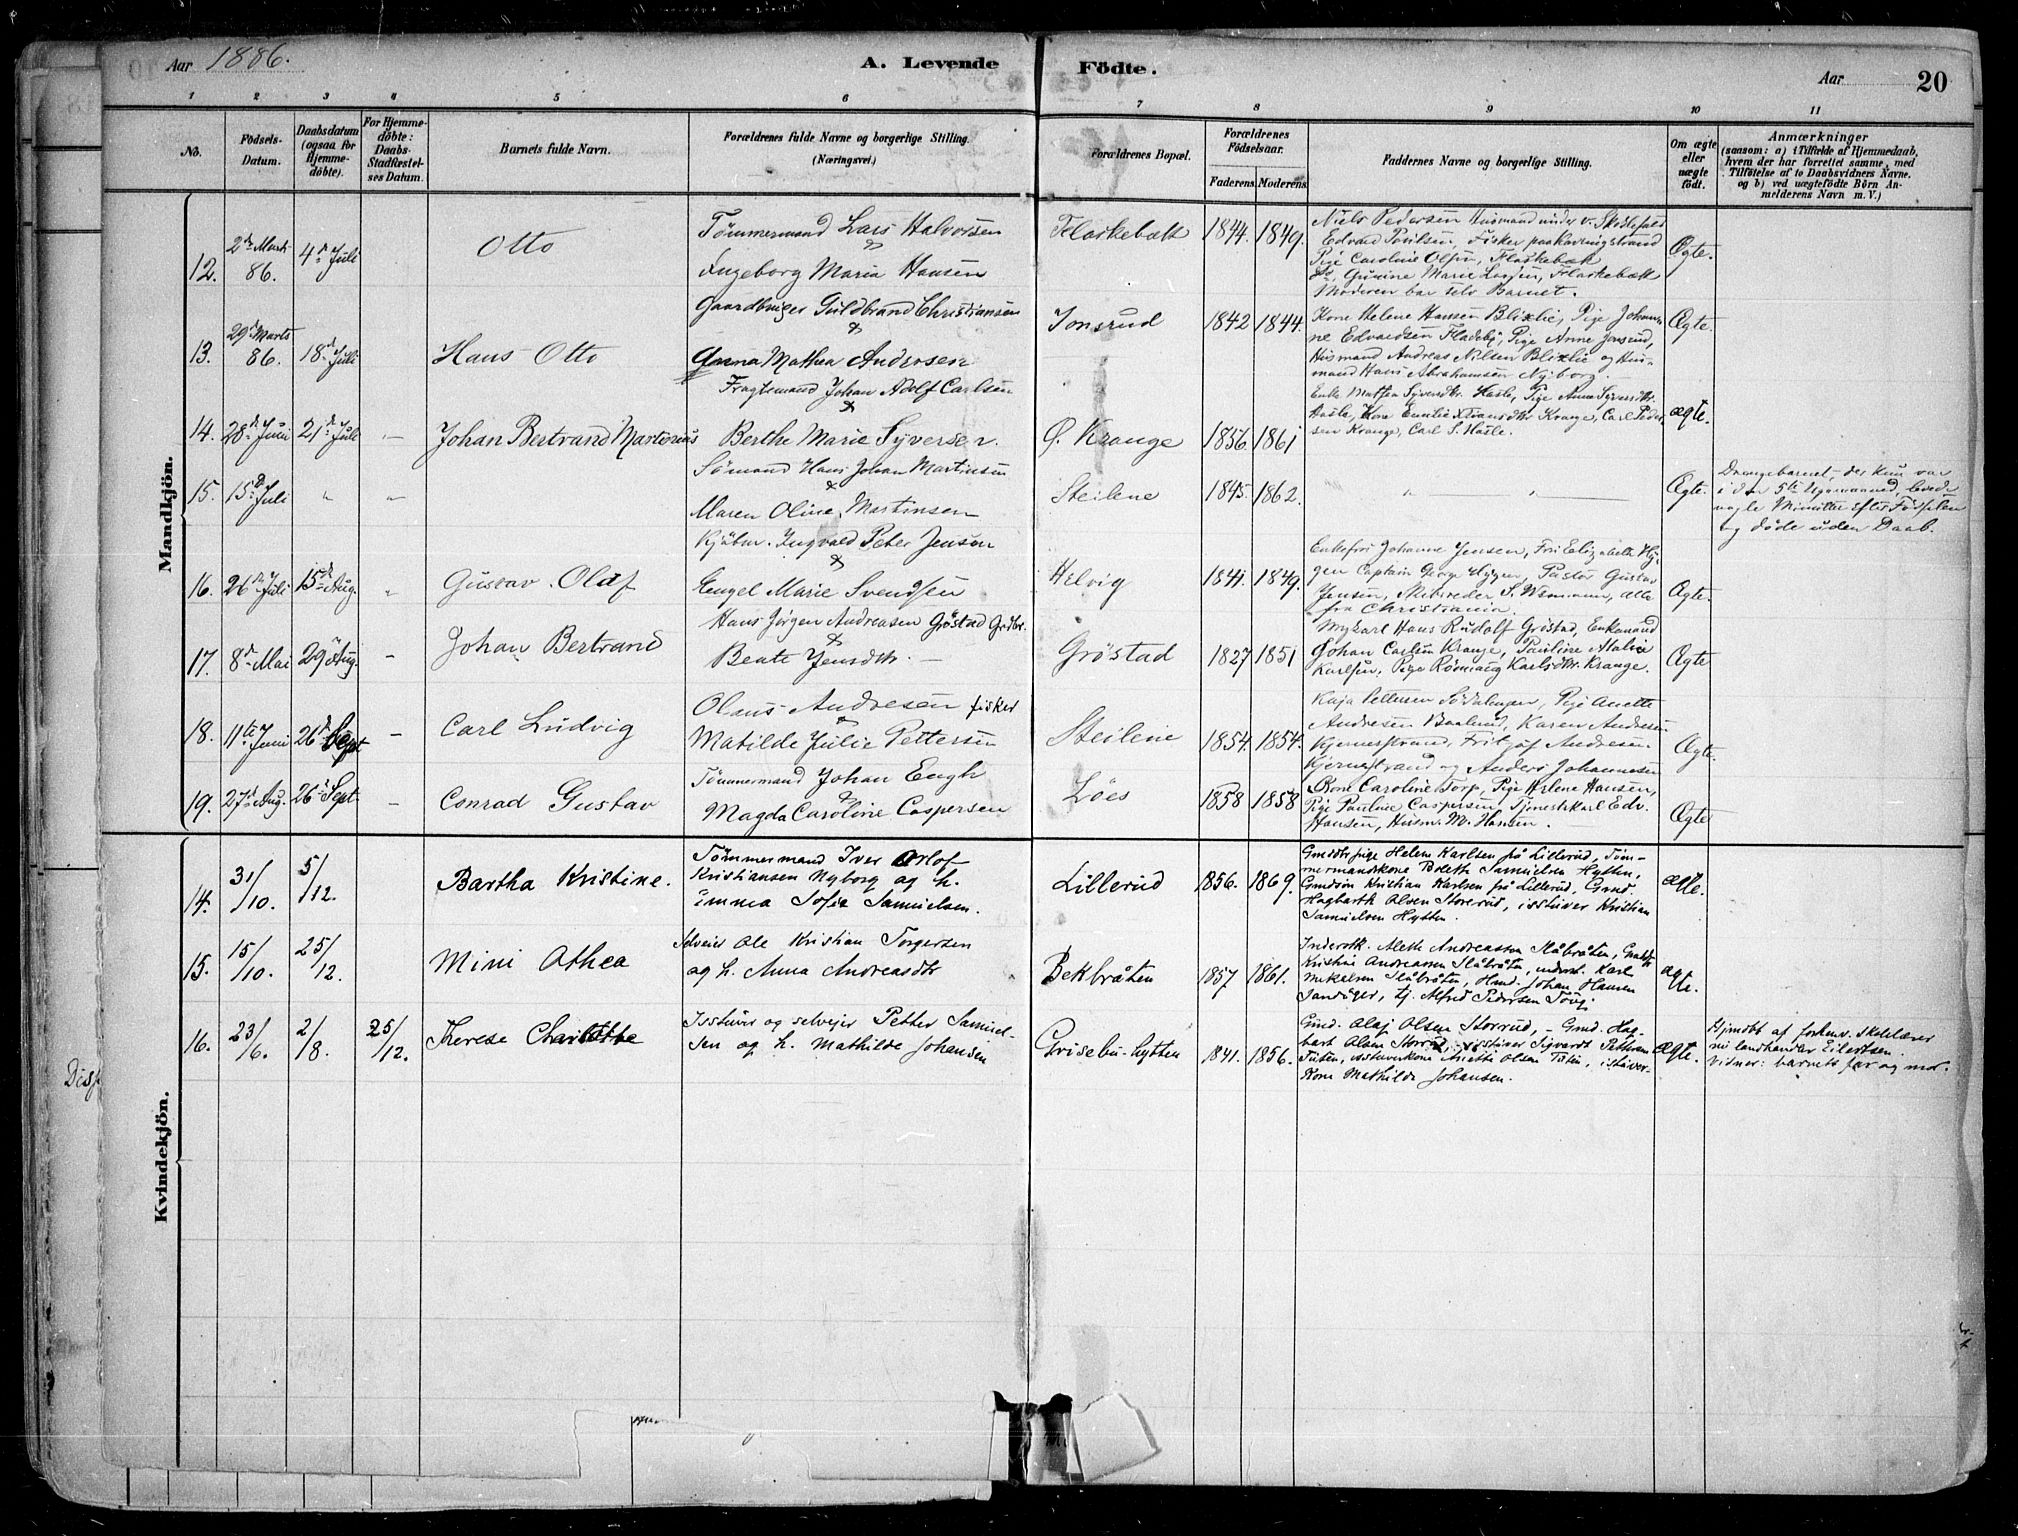 Aar 1886.
A. Levende Födte.
Aar 20
1 2 3 4 5 6 7 8 9 10 11
No.
Födsels-Datum.
Daabsdatum (ogsaa for Hjemme-döbte).
For Hjemme-döbte: Daabs-Stadfæstel-ses Datum.
Barnets fulde Navn.
Forældrenes fulde Navne og borgerlige Stilling. (Næringsvei.)
Forældrenes Bopæl.
Forældrenes Födselsaar.
Faderens. Moderens.
Faddernes Navne og borgerlige Stilling.
Om ægte eller uægte født.
Anmærkninger
(saasom: a) i Tilfælde af Hjemmedaab,
hvem der har forrettet samme, med
Tilföielse af to Daabsvidners Navne.
og b) ved uægtefödte Börn An-
melderens Navn m. V.)
Mandkjön.
12. 2den Marts 86. 4de Juli
Otto
Tømmermand Lars Halvorsen
&
Ingeborg Maria Hansen
Flaskebæk 1844. 1849.
Niels Pedersen Husmand under v. Skoklefald
Edvard Poulsen, Fisker paa Kavringstrand
Pige Caroline Olsen, Flaskebæk
Do. Gunine Marie Larsen, Flaskebæk
Moderen bar selv Barnet.
Ægte.
13. 29de Marts 86. 18de Juli
Hans Otto
Gaardbruger Guldbrand Christiansen
&
Mathea Andersen
Jonsrud 1842 1844.
Kone Helene Hansen Blixlie, Pige Johan-
ne Edvardsen Fladeby, Pige Anne Jonsrud,
Husmand Andreas Nilsen Blixlie og Hus-
mand Hans Abrahamsen Nyborg.
Ægte.
14. 28de Juni 21de Juli —
Johan Bertrand Martinius
Fragtemand Johan Adolf Carlsen
&
Berthe Marie Syversen.
Ø. Krange 1856. 1861
Enke Mathea Syversdtr. Hasle, Pige Anne Syversdtr.
Hasle, Kone Emilie Xtiansdtr. Krange, Carl Peder-
sen Krange, Carl S. Hasle.
ægte.
15. 15de Juli " "
Sømand Hans Johan Martinsen
&
Maren Oline Martinsen
Steilene 1845. 1862.
" — " —
Ægte.
Drengebarnet, der kun var
i den 5te levede
nogle Minutter efter Fødselen
og døde uden Daab.
16. 26de Juli 15de Aug. "
Gustav Olaf
Kjøbm. Ingvald Peter Jensen
&
Engel Marie Svendsen
Helvig 1841. 1849.
Enkefru Johanne Jensen, Fru Elizabeth
Captain George Pastor Gustav
Jensen, Skibsreder S. alle
fra Christiania.
Ægte.
17. 8de Mai 29de Aug. —
Johan Bertrand
Hans Jørgen Andreasen Grøstad Grdbr.
&
Beate Jensdtr. —
Grøstad 1827 1851
Ungkarl Hans Rudolf Grøstad, Enkemand
Johan Carlsen Krange, Pauline Atalie
Karlsen, Pige Rønnaug Karlsdtr. Krange.
Ægte
18. 11te Juni 26de Sept —
Carl Ludvig
Olaus Andresen fisker
&
Matilde Julie Pettersen
Steilene 1854. 1854.
Kaja Pettersen Pige Anette
Andresen Karen Andresen
Fritjof Andresen
og Anders Johannesen
Ægte.
19. 27de Aug. 26de Sept. —
Conrad Gustav
Tømmermand Johan Engh
&
Magda Caroline Caspersen
Løes 1858 1858
Kone Caroline Torp, Pige Helene Hansen,
Pige Pauline Caspersen, Tjenestekarl Edv.
Hansen, Husm. M. Hansen. —
Ægte
Kvindekjön.
14. 31/10. 5/12.
Bartha Kristine.
Tömmermand Iver Orlof
Kristiansen Nyborg og h.
imma Sofie Samuelsen.
Lillerud 1856. 1869.
pige Helene Karlsen på Lillerud, Töm-
mermandskone Bolette Samuelsen Hytten,
Gmdsön Kristian Karlsen på Lillerud, Gmd.
Hagbarth Olsen Storerud, isstuver Kristian
Samuelsen Hytten.
ægte.
15. 15/10. 25/12.
Mini Athea
Selveier Ole Kristian Torgersen
og h. Anna Andreasdtr
Bekbråten 1857 1861.
Inderstk. Alette Andreassen Slåbråten,
Kristine Andreassen Slåbråten, inderst. Karl
Mikalsen Slåbråten, Hmd. Johan Hansen
Sandåger, tj. Alfred Pedersen
ægte.
16. 23/6. 2/8. 25/12.
Therese Charlotte
Isstuver og selvejer Petter Samuel-
sen og h. Mathilde Johansen
Grisebu-hytten 1841. 1856.
Gmd. Olaj Olsen Storrud, – Gmd. Hag-
bart Olsen Storrud, isstuver Sigvardt Pettersen
Tuten, isstuverkone Anette Olsen Tuten, isstuver-
kone Mathilde Johansen.
ægte.
Hjmdöbt af forhenv. Skolelærer
nu landhandler Eilertsen.
Vidner: barnets far og mor.